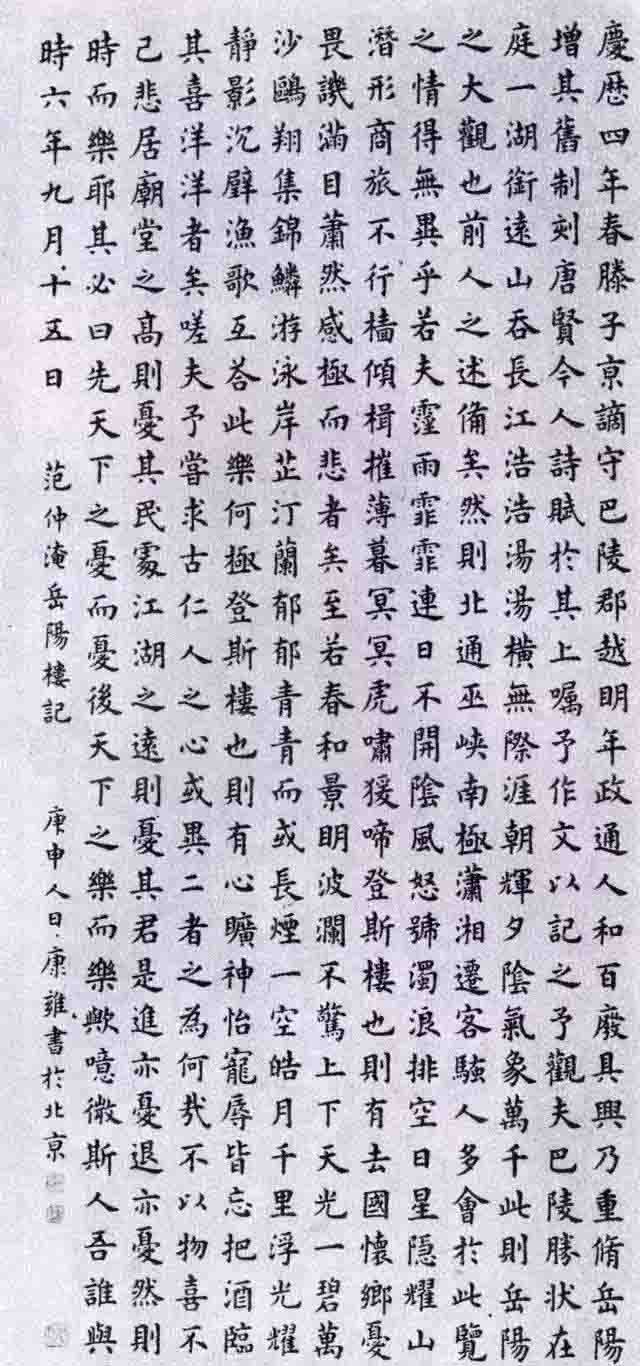 慶歷四年春滕子京謫守巴陵郡越明年政通人和百廢具興乃重脩岳陽
增其舊制刻唐賢今人詩賦於其上囑予作文以記之予觀夫巴陵勝狀在
庭一湖銜遠山吞長江浩浩湯湯橫無際涯朝輝夕陰氣象萬千此則岳陽
之大觀也前人之述備矣然則北通巫峽南極瀟湘遷客騷人多會於此覽
之情得無異乎若夫霪雨霏霏連日不開陰風怒號濁浪排空日星隱耀山
潛形商旅不行檣傾楫摧薄暮冥冥虎嘯猨啼登斯樓也則有去國懷鄉憂
畏譏滿目蕭然感極而悲者矣至若春和景明波瀾不驚上下天光一碧萬
沙鷗翔集錦鱗游泳岸芷汀蘭郁郁青青而或長煙一空皓月千里浮光耀
靜影沉璧漁歌互答此樂何極登斯樓也則有心曠神怡寵辱皆忘把酒臨
其喜洋洋者矣嗟夫予嘗求古仁人之心或異二者之為何哉不以物喜不
己悲居廟堂之高則憂其民處江湖之遠則憂其君是進亦憂退亦憂然則
時而樂耶其必曰先天下之憂而憂後天下之樂而樂歟噫微斯人吾誰與
時六年九月十五日 范仲淹岳陽樓記 庚申人日康雍書於北京